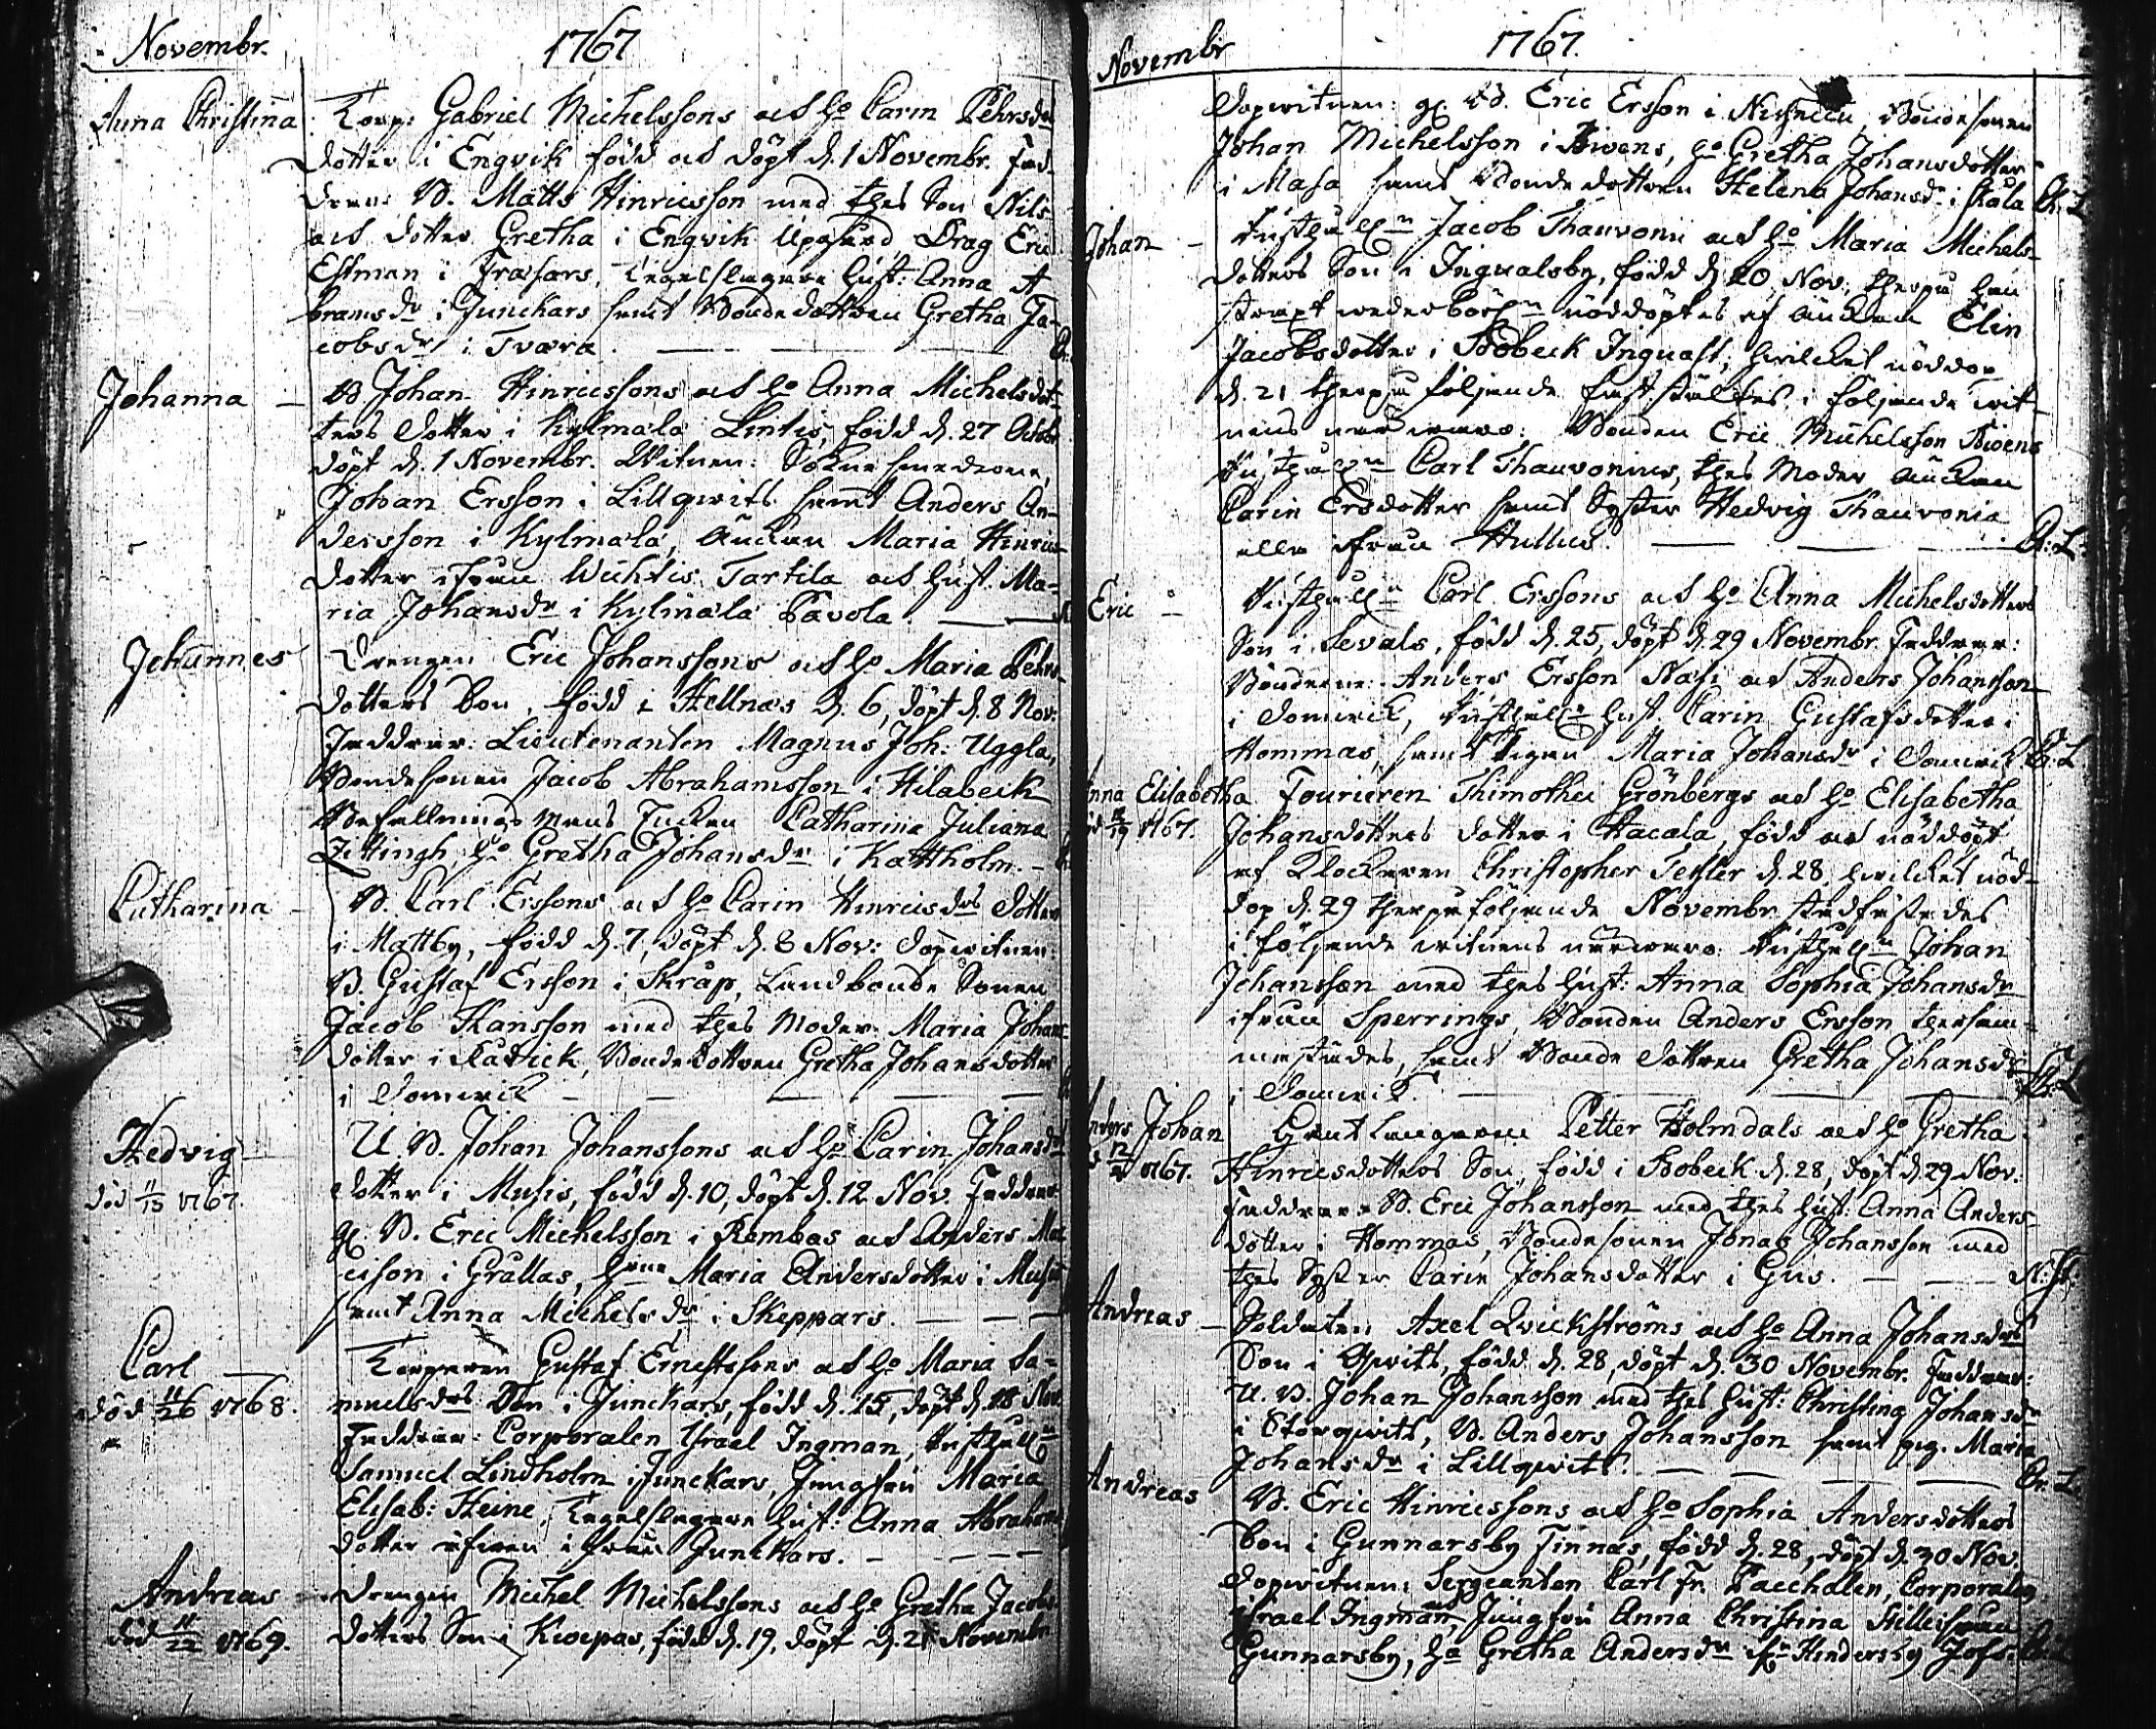 Novembr.
1767
Anna Christina
Torp: Gabriel Michelssons och ho Carin Pehrsd
dotter i Engvik född och döpt d. 1 Novembr. Fad-
drar: B. Matts Hinricsson med thes Son Nils
och dotter Gretha i Engvik Uppgård, Drag Eric
Estman i Fräsars, Tegelslagare hust: Anna A-
bramsdr i Junckars samt Bondedottren Gretha Ja-
cobsdr i Tvära
Johanna
B. Johan Hinricssons och ho Anna Michelsdot-
ters dotter i Kylmälä Lintis, född d. 27 Octobr
döpt d. 1 Novembr. Witnen: Sokne smedrarne
Johan Ersson i Lillqwits samt Anders An-
dersson i Kylmälä, Änckan Maria Hinrics-
dotter ifrån Wichtis Tartila och hust. Ma-
ria Johansdr i Kylmälä Pavola.
Johannes
Drengen Eric Johanssons och ho Maria Pehrs-
dotters Son, född i Hellnäs d. 6, döpt d. 8 Nov:
Faddrar: Lieutenanten Magnus Joh: Uggla,
Bondesonen Jacob Abrahamsson i Hilabeck
Befallnings mans Enckan Catharina Juliana
Zittingh, ho Gretha Johansdr i Kattholm.
Catharina
B. Carl Erssons och ho Carin Hinricsdrs dotter
i Mattby, född d. 7, döpt d. 8 Nov: dopwitnen:
B. Gustaf Ersson i Skräp, Landbonde Sonen
Jacob Hansson med thes Moder Maria Johans-
dotter i Råwick, Bondedottren Gretha Johansdotter
i Domwick
Hedvig
död 11/13 1767.
U. B. Johan Johanssons och ho Carin Johansdr
dotter i Musis, född d. 10, döpt d. 12 Nov. Faddrar
gl. B. Eric Michelsson i Rembas och Anders
i Grällas, Maria Andersdotter i
samt Anna Michelsdr i Skeppars.
Carl
död 11/26 1768.
Torparen Gustaf Ernestssons och ho Maria Sa-
muelsdrs Son i Junckars, född d. 15, döpt d. 18 Nov
Faddrar: Corporalen Israel Ingman,
Samuel Lindholm i Junckars, Jungfru Maria
Elisab: Heine, Tegelslagare hust: Anna Abrahams
dotter ifrån Junckars.
Andreas
död 11/22 1769.
Drengen Michel Michelssons och ho Gretha Jacobs
dotters Son i Kiwepas, född d. 19, döpt d. 21 Novembr
Novembr
1767.
Dopwitnen: gl. B. Eric Ersson i Bondesonen
Johan Michelsson i Biwens, ho Gretha Johansdotter
i Masa samt Bondedottren Helena Johansdr i Råla
Johan
Jacob Thauvonii och ho Maria Michels-
dotters Son i Ingwalsby, född d. 20 Nov: therpå han
straxt nöddöptes af Änckan Elin
Jacobsdotter i Bobeck Ingvast, hwilcket nöddop
d. 21 therpå följande fast stältes i följande wit-
nens närwaro: Bonden Eric Michelsson Biwens
Carl Thauvonius, thes Moder Änckan
Carin Ersdotter samt Syster Hedvig Thauvonia
alla ifrån Hullus.
Eric
Carl Erssons och ho Anna Michelsdotters
Son i Sevals, född d. 25, döpt d. 29 Novembr. Faddrar:
Bönderne Anders Ersson Näsi och Anders Johansson
i Domwick, hust. Carin Gustafsdotter i
Hommas, samt Pigan Maria Johansdr i Domwick
Anna Elisabetha
1767.
Fourieren Thimothei Grönbergs och ho Elisabetha
Johansdotters dotter i Hacala, född och nöddöpt
af Klockaren Christopher Tesler d. 28, hwilcket nöd-
dop d. 29 therpå följande Novembr stadfästades
i följande witnens närwaro: Johan
Johansson med thes hust: Anna Sophia Johansdr
ifrån Sperrings, Bonden Anders Ersson thersam-
mastädes, samt Bonde dottren Gretha Johansdr
i Domwick.
Anders Johan
1767.
Petter Holmdals och ho Gretha
Hinricsdotters Son, född i Bobeck d. 28, döpt d. 29 Nov.
Faddrar: B. Eric Johansson med thes hust: Anna Anders-
dotter i Hommas, Bondesonen Jonas Johansson med
thes Syster Carin Johansdotter i Gus.
Andreas
Soldaten Axel Qvickströms och ho Anna Johansdrs
Son i Qwits, född d. 28, döpt d. 30 Novembr. Faddrar:
U. B. Johan Johansson med thes hust: Christina Johansdr
i Storqwits, B. Anders Johansson samt pig. Maria
Johansdr i Lillqwits.
Andreas
B. Eric Hinricssons och ho Sophia Andersdotters
Son i Gunnarsby Finnäs, född d. 28, döpt d. 30 Nov.
Dopwitnen: Sergeanten Carl Fr. Paechalen, Corporalen
Israel Ingman, Jungfru Anna Christina
Gunnarsby, ho Gretha Andersdr ifrn Hindersby Jofs.